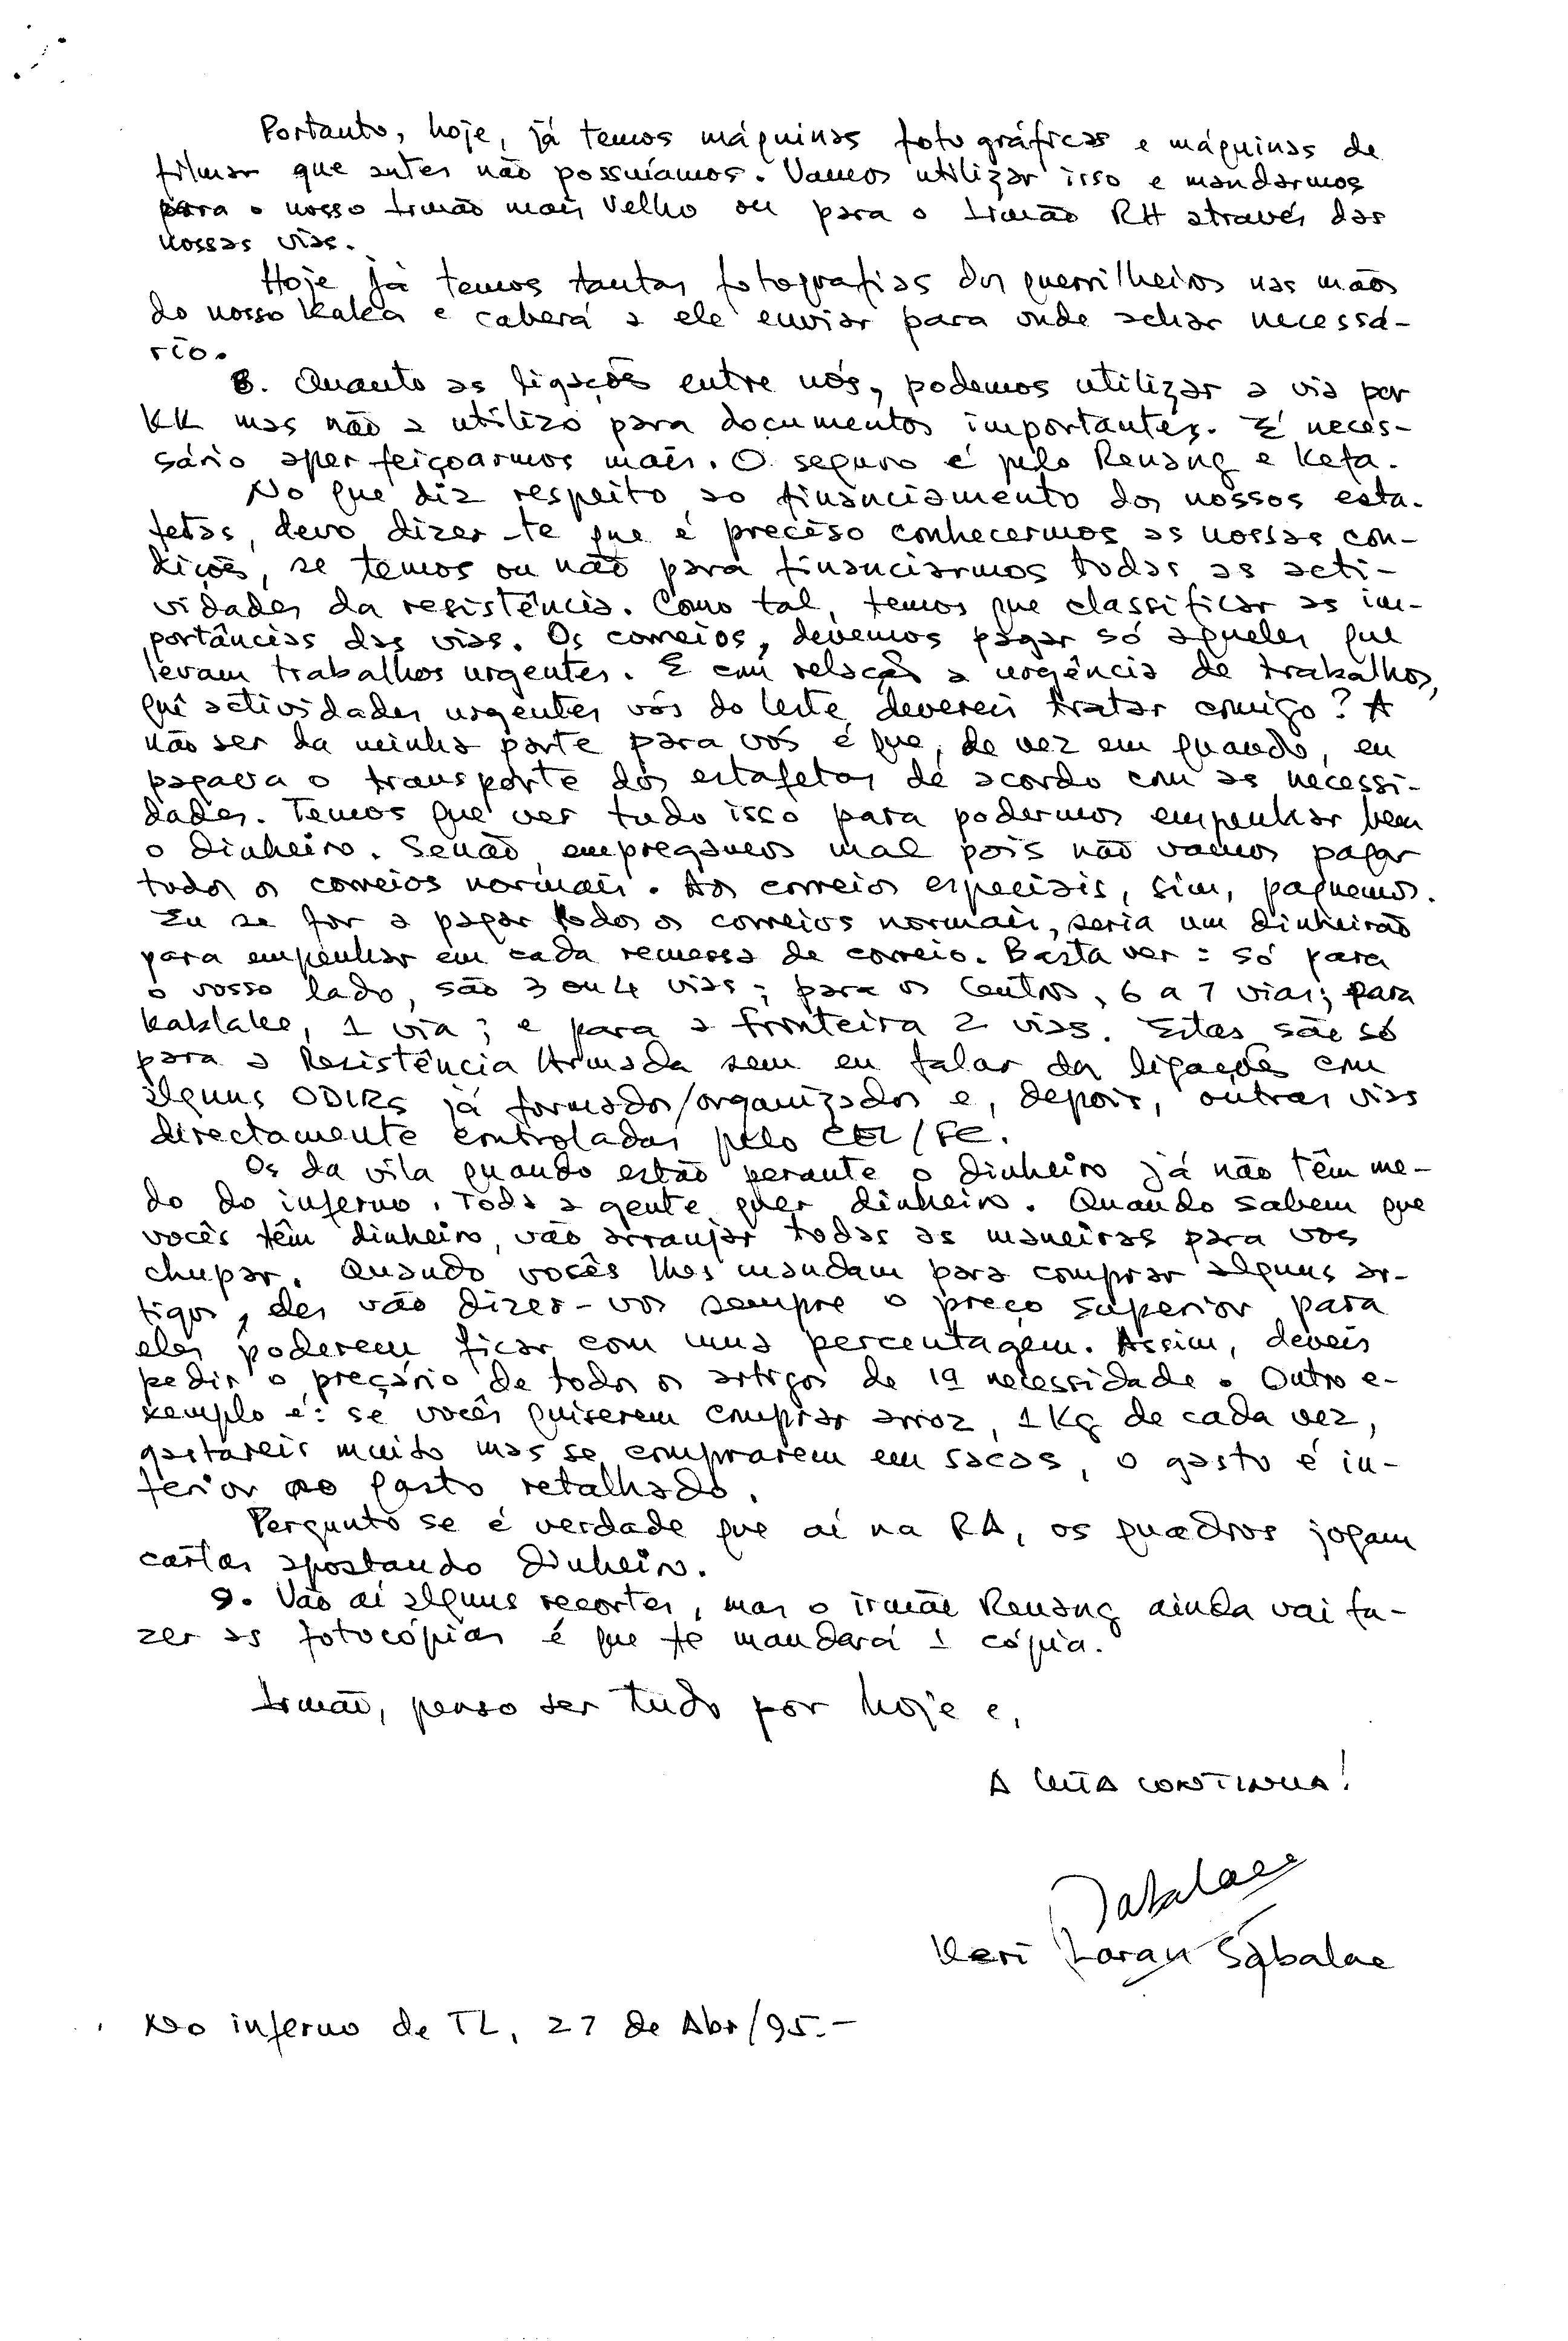 Portanto, hoje, já temos máquinas fotográficas e máquinas de
filmar que antes não possuíamos. Vamos utilizar isso e mandarmos
para o nosso Irmão mais Velho ou para o Irmão RH através das
nossas vias.
Hoje já temos tantas fotografias dos guerrilheiros nas mãos
do nosso Kaka e caberá a ele enviar para onde achar necessá-
rio.
8. Quanto as ligações entre nós, podemos utilizar a via por
KK mas não a utilizo para documentos importantes. É neces-
sário aperfeiçoarmos mais. O seguro é pelo Renang e Keta.
No que diz respeito ao financiamento dos nossos esta-
fetas, devo dizer-te que é preciso conhecermos as nossas con-
dições, se temos ou não para financiarmos todas as acti-
vidades da resistência. Como tal, temos que classificar as im-
portâncias das vias. Os correios, devemos pagar só aqueles que
levam trabalhos urgentes. E em relação a urgência de trabalhos,
quê actividades urgentes vós do leste devereis tratar comigo? A
não ser da minha parte para vós é que, de vez em quando, eu
pagava o transporte dos estafetas de acordo com as necessi-
dades. Temos que ver tudo isso para podermos empenhar bem
o dinheiro. Senão, empregamos mal pois não vamos pagar
todos os correios normais. Aos correios especiais, sim, paguemos.
Eu se for a pagar todos os correios normais, seria um dinheirão
para empenhar em cada remessa de correio. Basta ver: só para
o vosso lado, são 3 ou 4 vias; para os Centros, 6 a 7 vias; para
Kablake, 1 via; e para a fronteira 2 vias. Estas são só
para a Resistência Armada sem eu falar da ligações com
alguns ODIRs já formados/organizados e, depois, outras vias
directamente controladas pelo CEL/FC.
Os da vila quando estão perante o dinheiro já não têm me-
do do inferno. Toda a gente quer dinheiro. Quando sabem que
vocês têm dinheiro, vão arranjar todas as maneiras para vos
chupar. Quando vocês lhes mandam para comprar alguns ar-
tigos, eles vão dizer-vos sempre o preço superior para
eles poderem ficar com uma percentagem. Assim, deveis
pedir o preçário de todos os artigos de 1ª necessidade. Outro e-
xemplo é: se vocês quiserem comprar arroz, 1 Kg de cada vez,
gastareis muito mas se comprarem em sacos, o gasto é in-
ferior ao gasto retalhado.
Pergunto se é verdade que aí na RA, os quadros jogam
cartas apostando dinheiro.
9. Vão aí alguns recortes, mas o irmão Renang ainda vai fa-
zer as fotocópias é que te mandará 1 cópia.
Irmão, penso ser tudo por hoje e,
A LUTA CONTINUA!
Sabalae
Keri Laran Sabalae
No inferno de TL, 27 de Abr/95.-